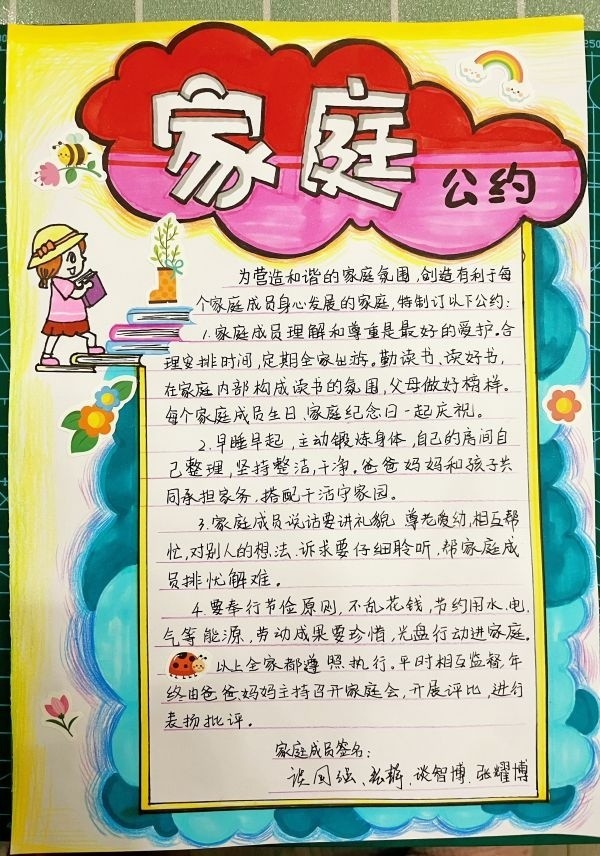 家庭
公约
为营造和谐的家庭氛围,创造有利于每
个家庭成员身心发展的家庭,特制订以下公约:
1.家庭成员理解和尊重是最好的爱护。合
理安排时间,定期全家出游。勤读书、读好书,
在家庭内部构成读书的氛围,父母做好榜样。
每个家庭成员生日、家庭纪念日一起庆祝。
2.早睡早起,主动锻炼身体,自己的房间自
己整理,坚持整洁,干净。爸爸妈妈和孩子共
同承担家务,搭配干活守家园。
3.家庭成员说话要讲礼貌 尊老爱幼,相互帮
忙,对别人的想法、诉求要仔细聆听,帮家庭成
员排忧解难。
4.要奉行节俭原则,不乱花钱,节约用水、电、
气等能源,劳动成果要珍惜,光盘行动进家庭。
以上全家都遵照执行。平时相互监督,年
终由爸爸妈妈主持召开家庭会,开展评比,进行
表扬批评。
家庭成员签名:
谈国强、谈智博、张耀博